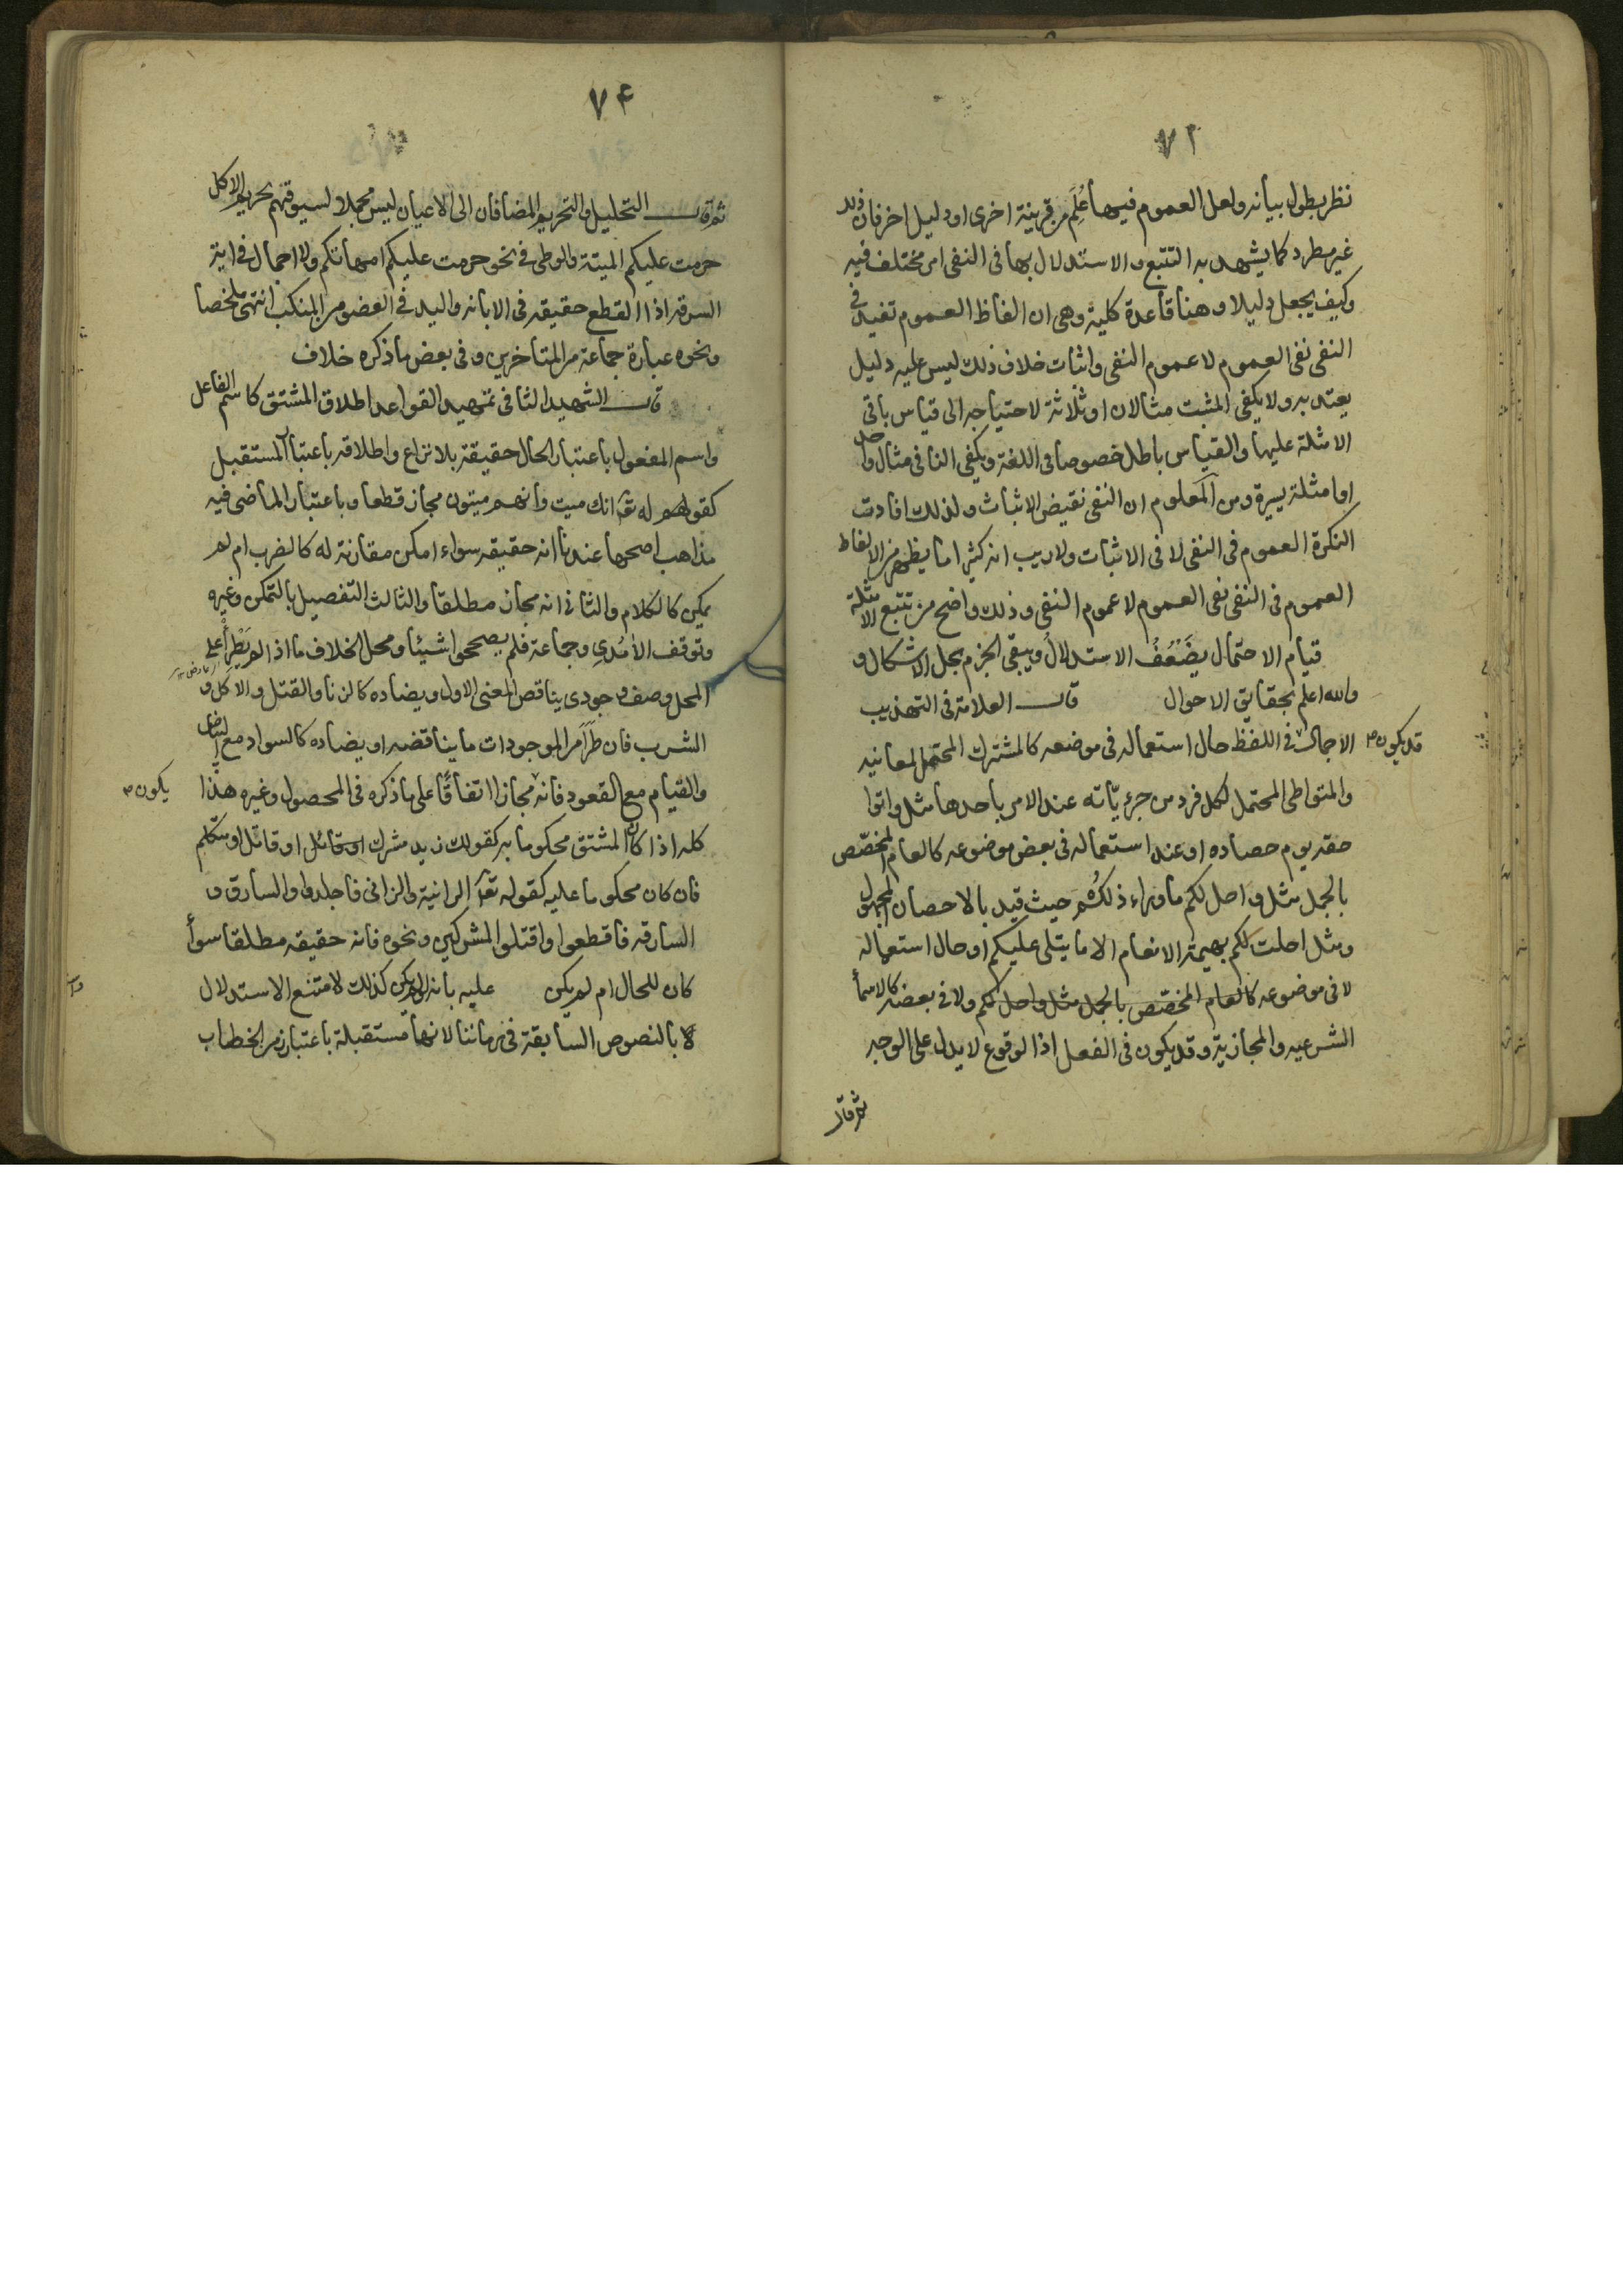 ٧٢
نظر يطول بيانه ولعل العموم فيها عُلِم من قرينة اخرى او دليل اخر فان ذلك
غير مطرد كما يشهد به التتبع والاستدلال بها فى النفى امر مختلف فيه
وكيف يجعل دليلا وهنا قاعدة كلية وهى ان الفاظ العموم تفيد فى
النفى نفى العموم لا عموم النفى واثبات خلاف ذلك ليس عليه دليل
يعتد به ولا يكفى المثبت مثالان او ثلاثة لاحتياجه الى قياس باقى
الامثلة عليها والقياس باطل خصوصا فى اللغة ويكفى النافى مثال واحد
او امثلة يسيرة ومن المعلوم ان النفى نقيض الاثبات ولذلك افادت
النكرة العموم فى النفى لا فى الاثبات ولا ريب انه كثيرا ما يظهر من الالفاظ
العموم فى النفى نفى العموم لا عموم النفى وذلك واضح من تتبع الامثلة
قيام الاحتمال يضَعُفُ الاستدلالُ ويبقى الجزم محل الاشكال و
والله اعلم بحقايق الاحوال قال العلامة فى التهذيب
قد يكون الاجمال فى اللفظ حال استعماله فى موضعه كالمشترك المحتمل لمعانيه
والمتواطى المحتمل لكل فرد من جزئيّاته عند الامر باحدها مثل واتوا
حقه يوم حصاده او عند استعماله فى بعض موضوعه كالعام المخصّص
بالمجمل مثل واحل لكم ما وراء ذلكُم حيث قيد بالاحصان المجهول
ومثل احلت لكم بهيمة الانعام الا ما يتلى عليكم او حال استعماله
لا فى موضوعه كالعام المخصّص بالمجمل مثل واحل لكم ولا فى بعضه كالاسمأ
الشرعيه والمجازية وقد يكون فى الفعل اذ الوقوع لا يدل على الوجه
ثم قال
٧٤
ثم قال التحليل والتحريم المضافان الى الاعيان ليس مجملا لسبق فهم تحريم الاكل
حرمت عليكم الميتة والوطى فى نحو حرمت عليكم امهاتكم ولا اجمال فى اية
السرقه اذ القطع حقيقه فى الابانه واليد فى العضو من المنكب انتهى ملخصا
ونحوه عبارة جماعة من المتاخرين وفى بعض ما ذكره خلاف
قال الشهيد الثانى فى تمهيد القواعد اطلاق المشتق كاسم الفاعل
واسم المفعول باعتبار الحال حقيقة بلا نزاع واطلاقه باعتبار المستقبل
كقوله تعَ انك ميت وانهم ميتون مجاز قطعا وباعتبار الماضى فيه
مذاهب اصحها عندنا انه حقيقه سواء امكن مقارنة له كالضرب ام لم
يمكن كالكلام والثانى انه مجاز مطلقا والثالث التفصيل بالتمكن وغيره
وتوقف الآمُدى وجماعة فلم يصححوا شيئا ومحل الخلاف ما اذا لم يَطْرأ على
المحل وصف وجودى يناقض المعنى الاول ويضاده كالزنا والقتل والاكل و
الشرب فان طَرَأ من الموجودات ما يناقضه او يضاده كالسواد مع البياض
والقيام مع القعود فانه يكون مجازا اتفاقًا على ما ذكره فى المحصول وغيره هذا
كله اذا كان المشتق محكوما به كقولك زيد مشرك او قاتل او متكلم
فان كان محكوما عليه كقوله تعَ الزانية والزانى فاجلدوا والسارق و
السارقه فاقطعوا واقتلوا المشركين ونحوه فانه حقيقه مطلقا سوأ
كان للحال ام لم يكن عليه بانه لو لم يكن كذلك لامتنع الاستدلال
بالنصوص السابقة فى زماننا لانها مستقبلة باعتبار زمن الخطاب